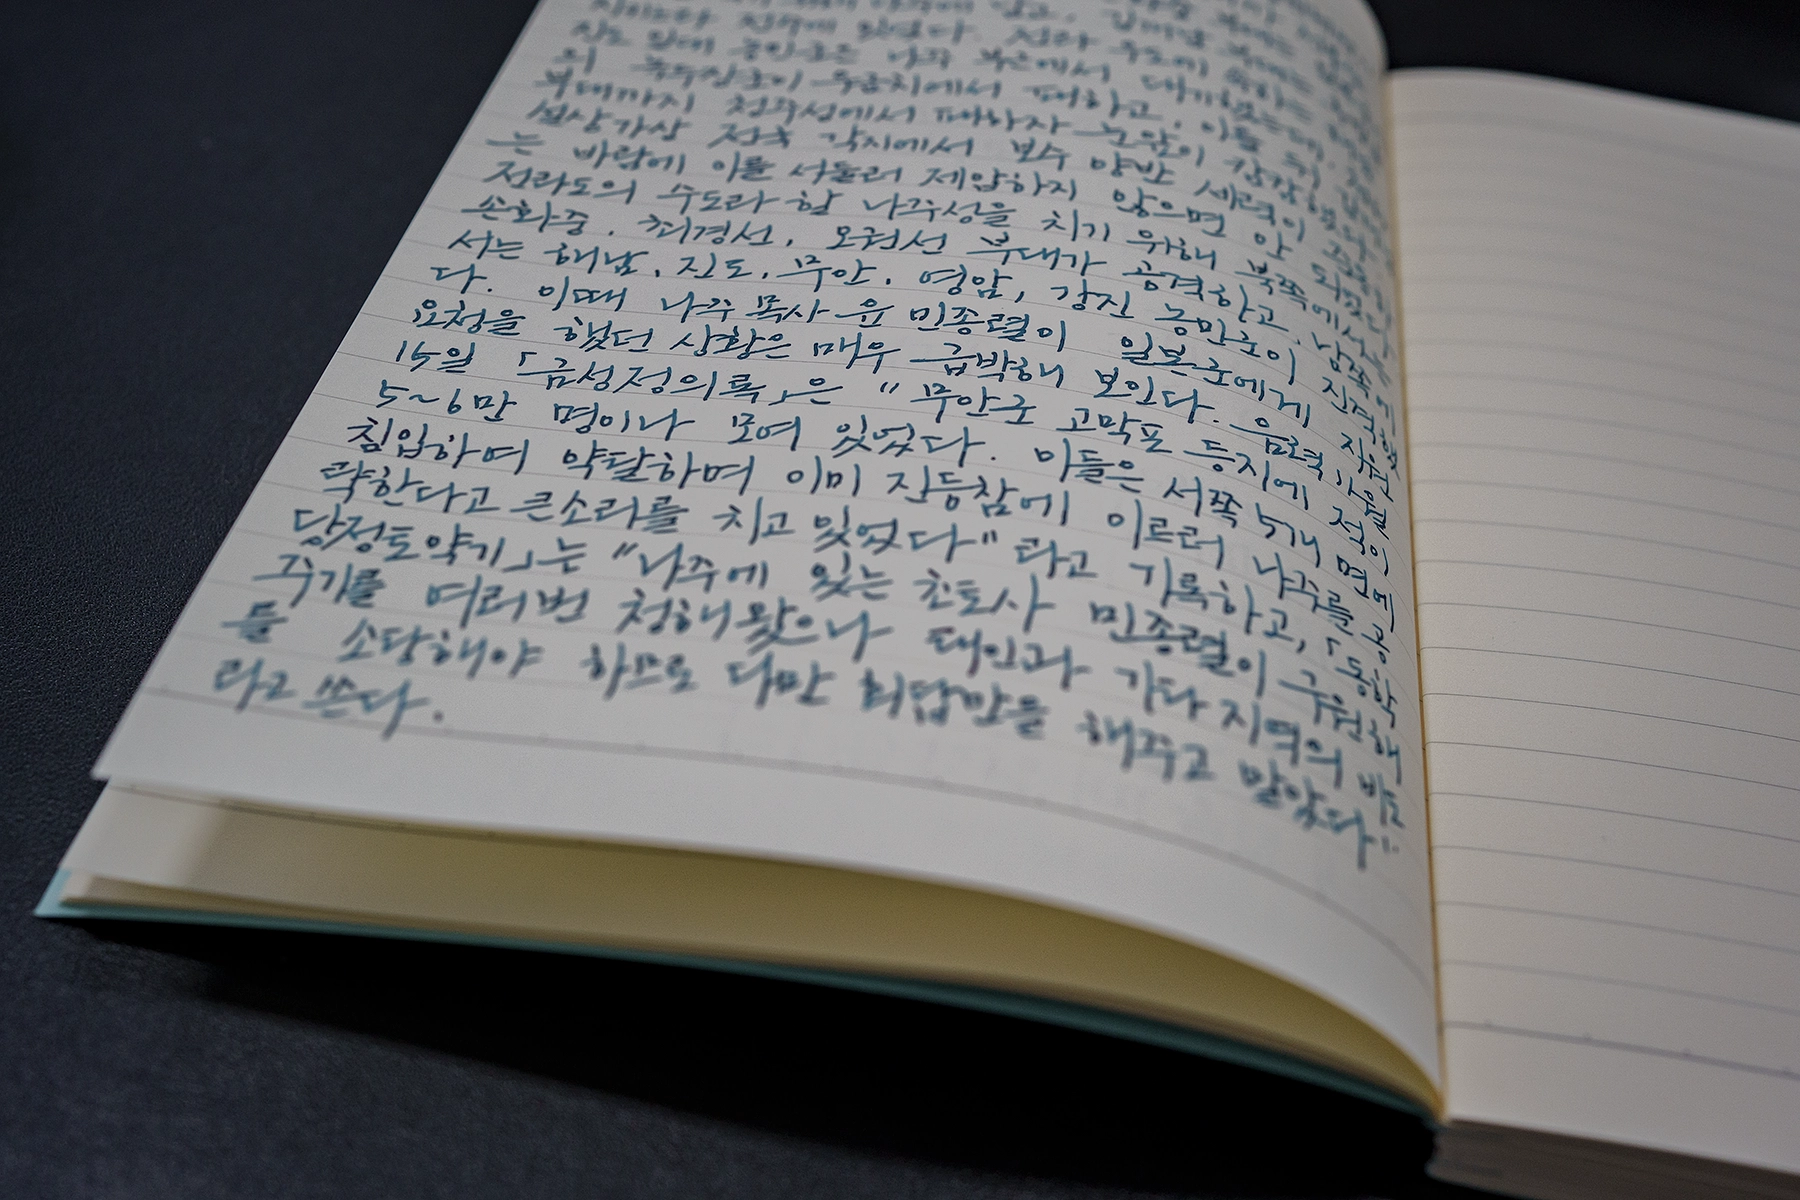 전라 우도에 속하는
진도 일대 농민군은 나주 부근에서 대기했는데,
의 농민군이 우금치에서 패하고, 이들 뒤
부대까지 청주성에서 패하자 눈앞이 캄캄했
설상가상 전국 각지에서 보수 양반 세력이
는 바람에 이를 서둘러 제압하지 않으면 안 되었다.
전라도의 수도라 할 나주성을 치기 위해 북쪽에서는
손화중, 최경선, 오권선 부대가 공격하고, 남쪽에
서는 해남, 진도, 무안, 영암, 강진 농민군이 진격했
다. 이때 나주 목사 민종렬이 일본군에게 지원
요청을 했던 상황은 매우 급박해 보인다. 음력 11월
15일 「금성정의록」은 "무안군 고막포 등지에 적이
5~6만 명이나 모여 있었다. 이들은 서쪽 5개 면에
침입하며 약탈하며 이미 진등참에 이르러 나주를 공
략한다고 큰소리를 치고 있었다"라고 기록하고, 「동학
당정토약기」는 "나주에 있는 초토사 민종렬이 구원해
주기를 여러번 청해왔으나 태인과 기타 지역의 비도
를 소탕해야 하므로 다만 회답만을 해주고 말았다"
라고 쓴다.